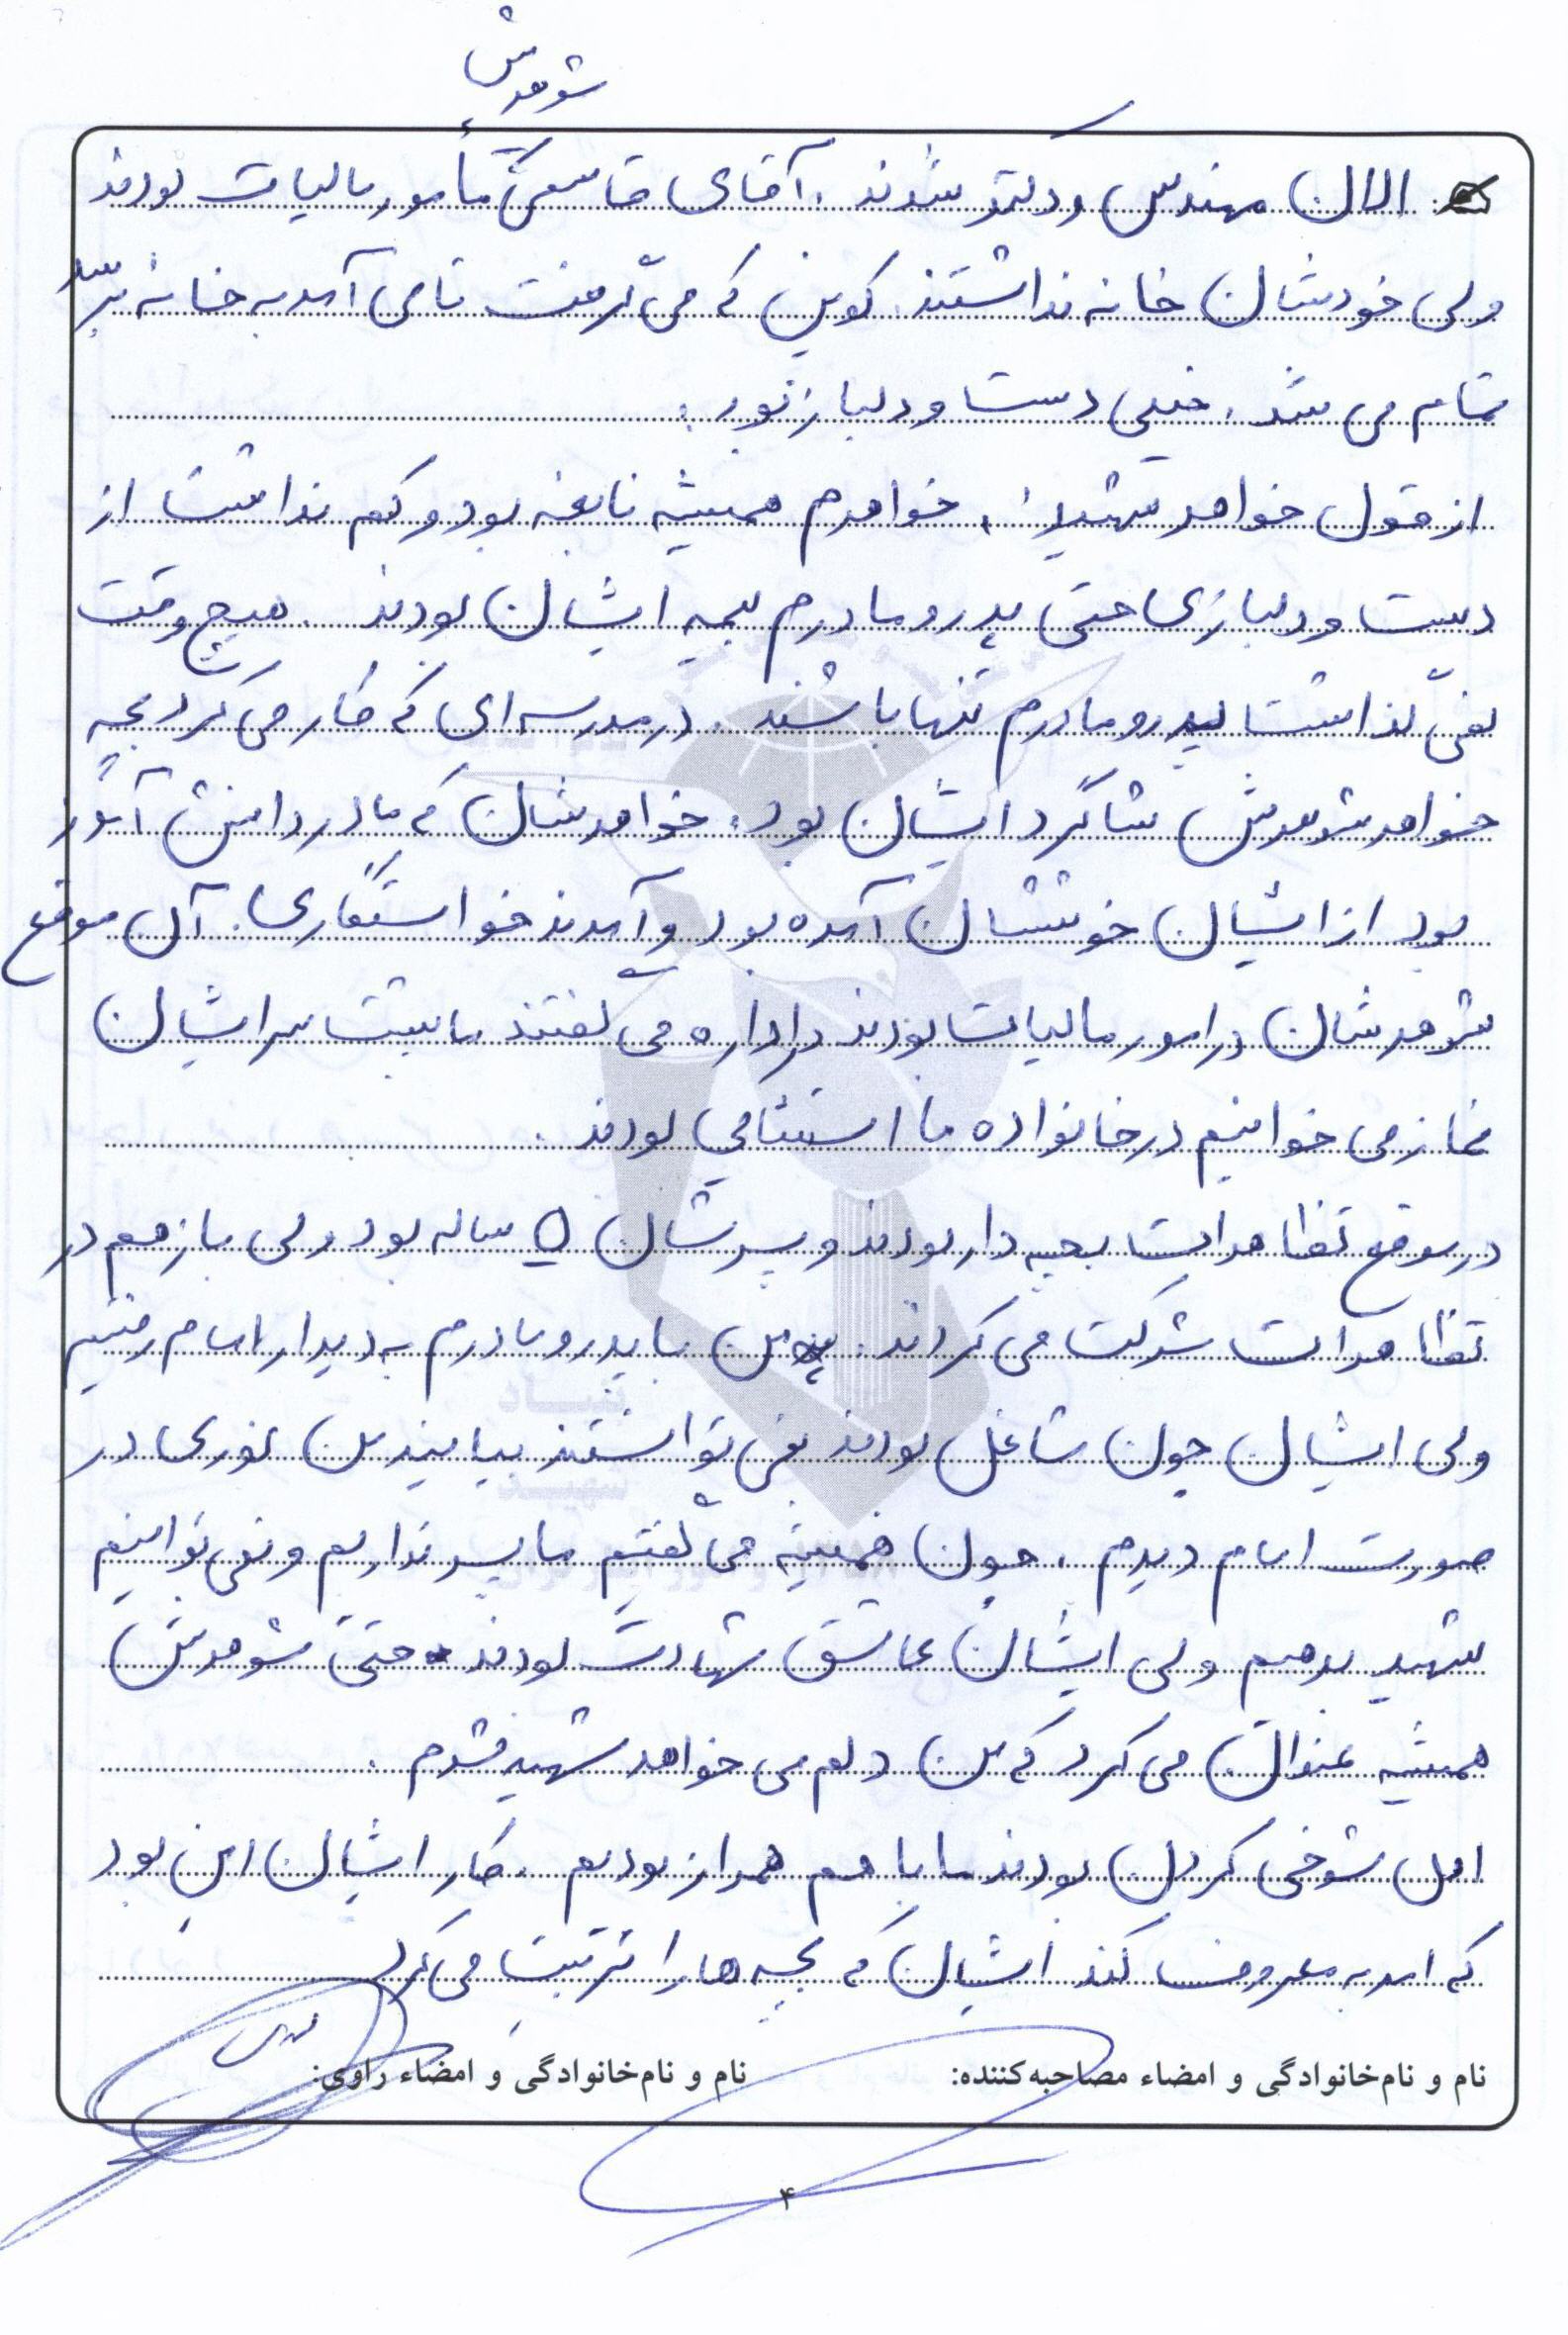 شوهرش
الان مهندس و دکتر شدند. آقای قاسمی مأمور مالیات بودند
ولی خودشان خانه نداشتند. کوپن که می گرفت تا می آمد به خانه برسد
تمام می شد. خیلی دست و دلباز بود.
از قول خواهر شهید: خواهرم همیشه نابغه بود و کم نداشت از
دست و دلبازی حتی پدر و مادرم بیمه ایشان بودند. هیچ وقت
نمی گذاشت پدر و مادرم تنها باشند. در مدرسه ای که کار می کرد بچه
خواهر شوهرش شاگرد ایشان بود. خواهرشان که مادر دانش آموز
بود از ایشان خوششان آمده بود و آمدند خواستگاری. آن موقع
شوهرشان در امور مالیات بودند در اداره می گفتند ما پشت سر ایشان
نماز می خوانیم در خانواده ما استثنایی بودند.
در موقع تظاهرات بچه دار بودند و پسرشان ۵ ساله بود ولی باز هم در
تظاهرات شرکت می کردند. من با پدر و مادرم به دیدار امام رفتیم
ولی ایشان چون شاغل بودند نمی توانستند بیایند من نوری در
صورت امام دیدم. چون همیشه می گفتیم ما پسر نداریم و نمی توانیم
شهید بدهیم ولی ایشان عاشق شهادت بودند حتی شوهرش
همیشه عنوان می کرد که من دلم می خواهد شهید شدم.
اهل شوخی کردن بودند ما با هم همراز بودیم. کار ایشان این بود
که امر به معروف کند ایشان که بچه ها را تربیت می کرد
نام و نام‌خانوادگی و امضاء مصاحبه‌کننده: نام و نام‌خانوادگی و امضاء راوی:
۴